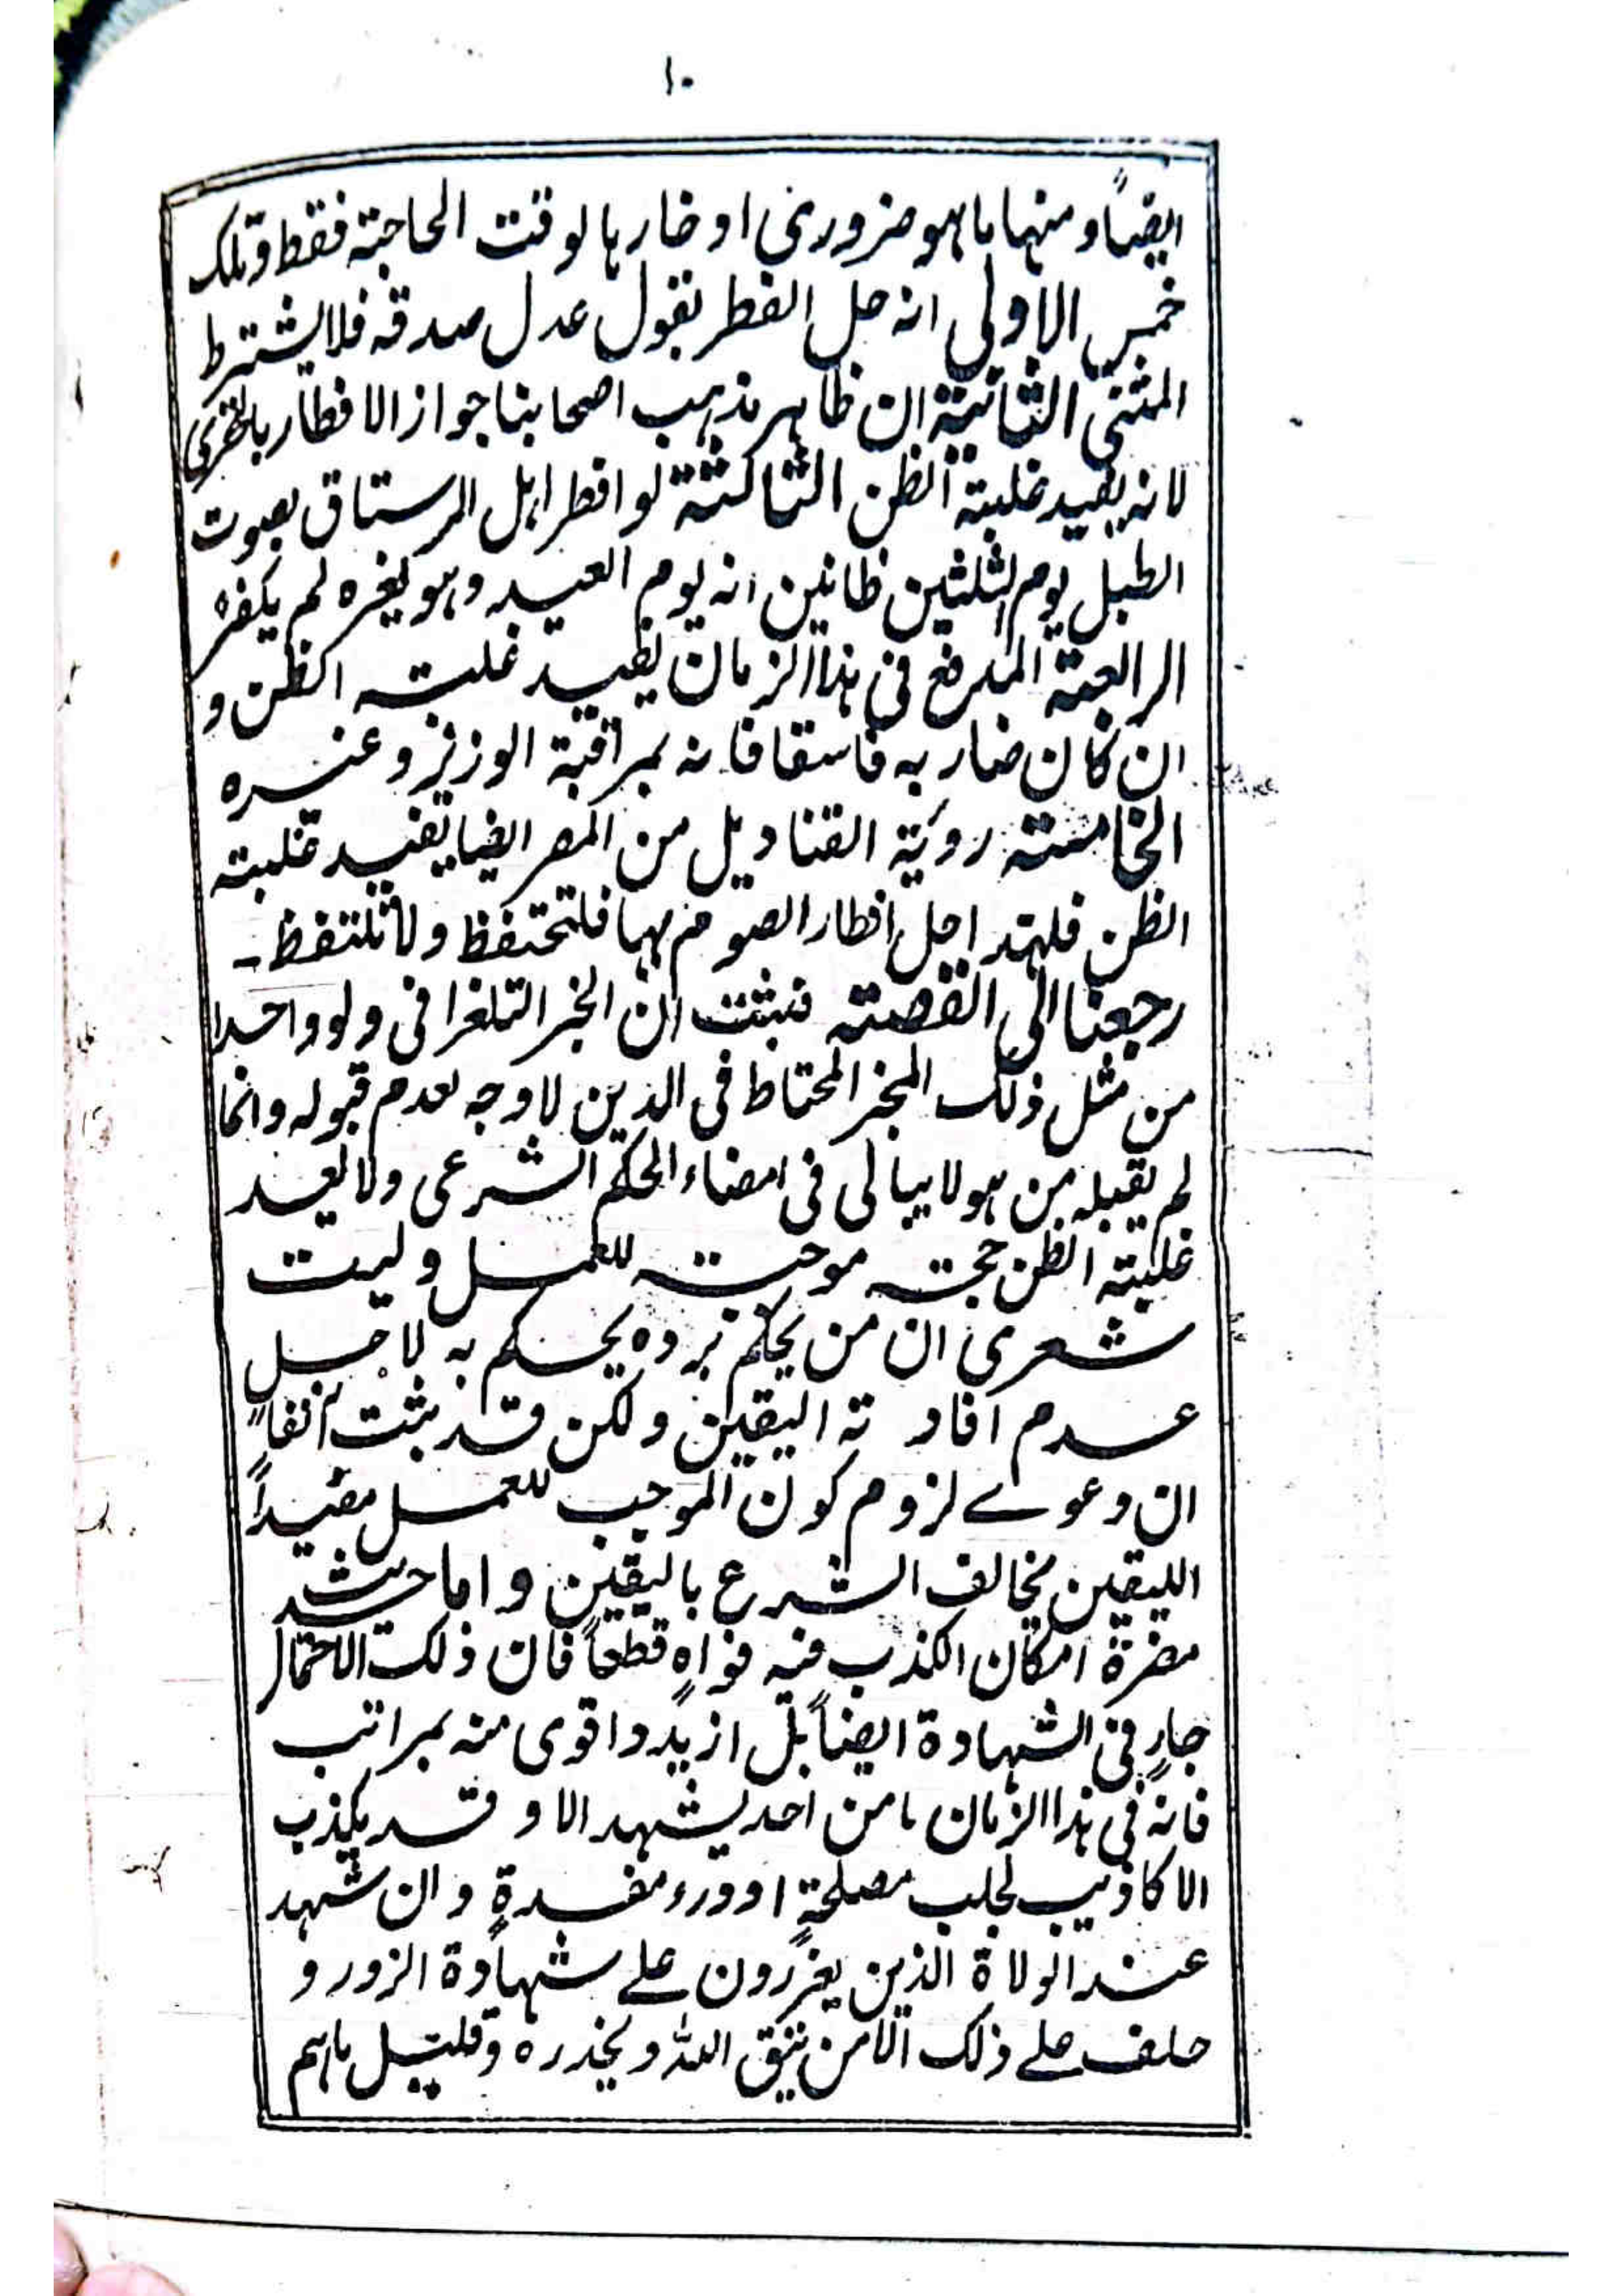 ١٠
ايضاً ومنها ما هو ضروري اوضارها لوقت الحاجة فقط وتلك
خمس الاولى انه حل الفطر بقول عدل صدقه فلا يشترط
المثنى الثانية ان ظاهر مذهب اصحابنا جواز الافطار بالتحري
لانه يفيد غلبة الظن الثالثة لو افطر اهل الرستاق بصوت
الطبل يوم الثلثين ظانين انه يوم العيد وهو لغيره لم يكفر
الرابعة المدفع في هذا الزمان يفيد غلبة الظن و
ان كان ضاربه فاسقا فانه بمراقبة الوزير وغيره
الخامسة روية القناديل من المصر ايضا يفيد غلبة
الظن فلهذا حل افطار الصوم بها فلتحتفظ ولا
رجعنا الى القصة فثبت ان الخبر التلغرافي ولو واحدا
من مثل ذلك المخبر المحتاط في الدين لا وجه لعدم قبوله وانما
لم يقبله من هو لا يبالى في امضاء الحكم الشرعي ولا يعد
غلبة الظن حجة موجبة للعمل وليت
شعري ان من يحكم برده يحكم به لاجل
عدم افادته اليقين ولكن قد ثبت آنفاً
ان دعوے لزوم كون الموجب للعمل مفيداً
لليقين يخالف الشرع باليقين واما حديث
مضرة امكان الكذب فيه فواهٍ قطعاً فان ذلك الاحتمال
جارٍ في الشهادة ايضاً بل ازيد واقوى منه بمراتب
فانه في هذا الزمان ما من احد يشهد الا وقد يكذب
الاكاذيب لجلب مصلحةٍ او درء مفسدةٍ وان شهد
عند الولاة الذين يعزرون علے شهادة الزور و
حلف علے ذلك الا من يتق الله ويحذره وقليل ما هم